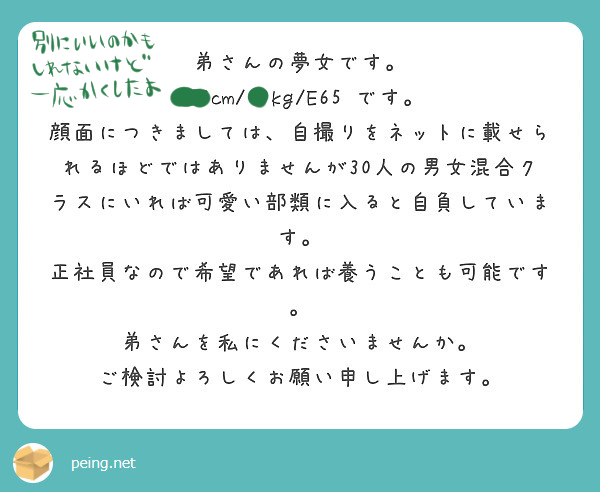 別にいいのかも
しれないけど
一応かくしたよ
弟さんの夢女です。
cm/ kg/E65 です。
顔面につきましては、自撮りをネットに載せら
れるほどではありませんが30人の男女混合ク
ラスにいれば可愛い部類に入ると自負していま
す。
正社員なので希望であれば養うことも可能です
。
弟さんを私にくださいませんか。
ご検討よろしくお願い申し上げます。
peing.net